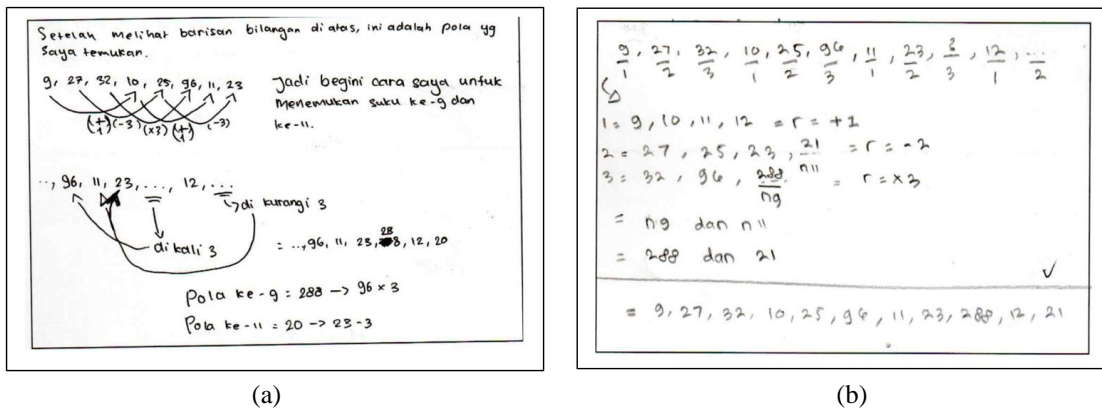 Setelah melihat barisan bilangan di atas, ini adalah pola yg
saya temukan.
9, 27, 32, 10, 25, 96, 11, 23
(+1) (-3) (x3) (+1) (-3)
Jadi begini cara saya untuk
menemukan suku ke-9 dan
ke-11.
.., 96, 11, 23, ..., 12, ...
di kurangi 3
di kali 3
= ..., 96, 11, 23, 288, 12, 20
Pola ke-9 = 288 → 96 x 3
Pola ke-11 = 20 → 23-3
(a)
9, 27, 32, 10, 25, 96, 11, 23, , 12, ...
1 2 3 1 2 3 1 2 3 1 2
1 = 9, 10, 11, 12 = r = +1
2 = 27, 25, 23, 21 = r = -2
n11
3 = 32, 96, 288 = r = x3
n9
= n9 dan n11
= 288 dan 21
✓
= 9, 27, 32, 10, 25, 96, 11, 23, 288, 12, 21
(b)